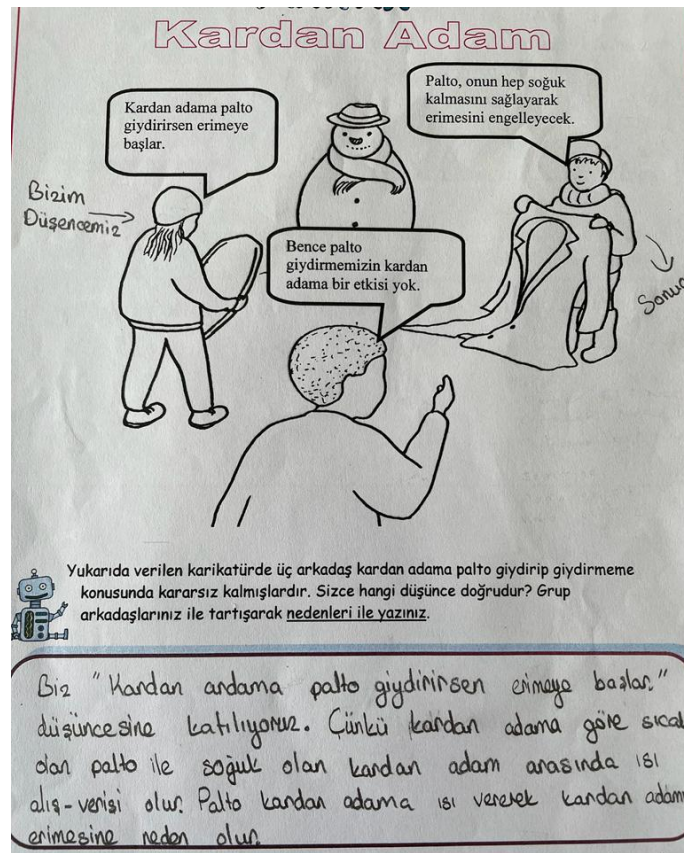 Kardan Adam
Kardan adama palto
giydirirsen erimeye
başlar.
Palto, onun hep soğuk
kalmasını sağlayarak
erimesini engelleyecek.
Bizim
Düşencemiz
Bence palto
giydirmemizin kardan
adama bir etkisi yok.
Sonuç
Yukarıda verilen karikatürde üç arkadaş kardan adama palto giydirip giydirmeme
konusunda kararsız kalmışlardır. Sizce hangi düşünce doğrudur? Grup
arkadaşlarınız ile tartışarak nedenleri ile yazınız.
Biz "Kardan andama palto giydirirsen erimeye başlar."
düşüncesine katılıyoruz. Çünkü kardan adama göre sıcak
olan palto ile soğuk olan kardan adam arasında ısı
alış-verişi olur. Palto kardan adama ısı vererek kardan adam
erimesine neden olur.